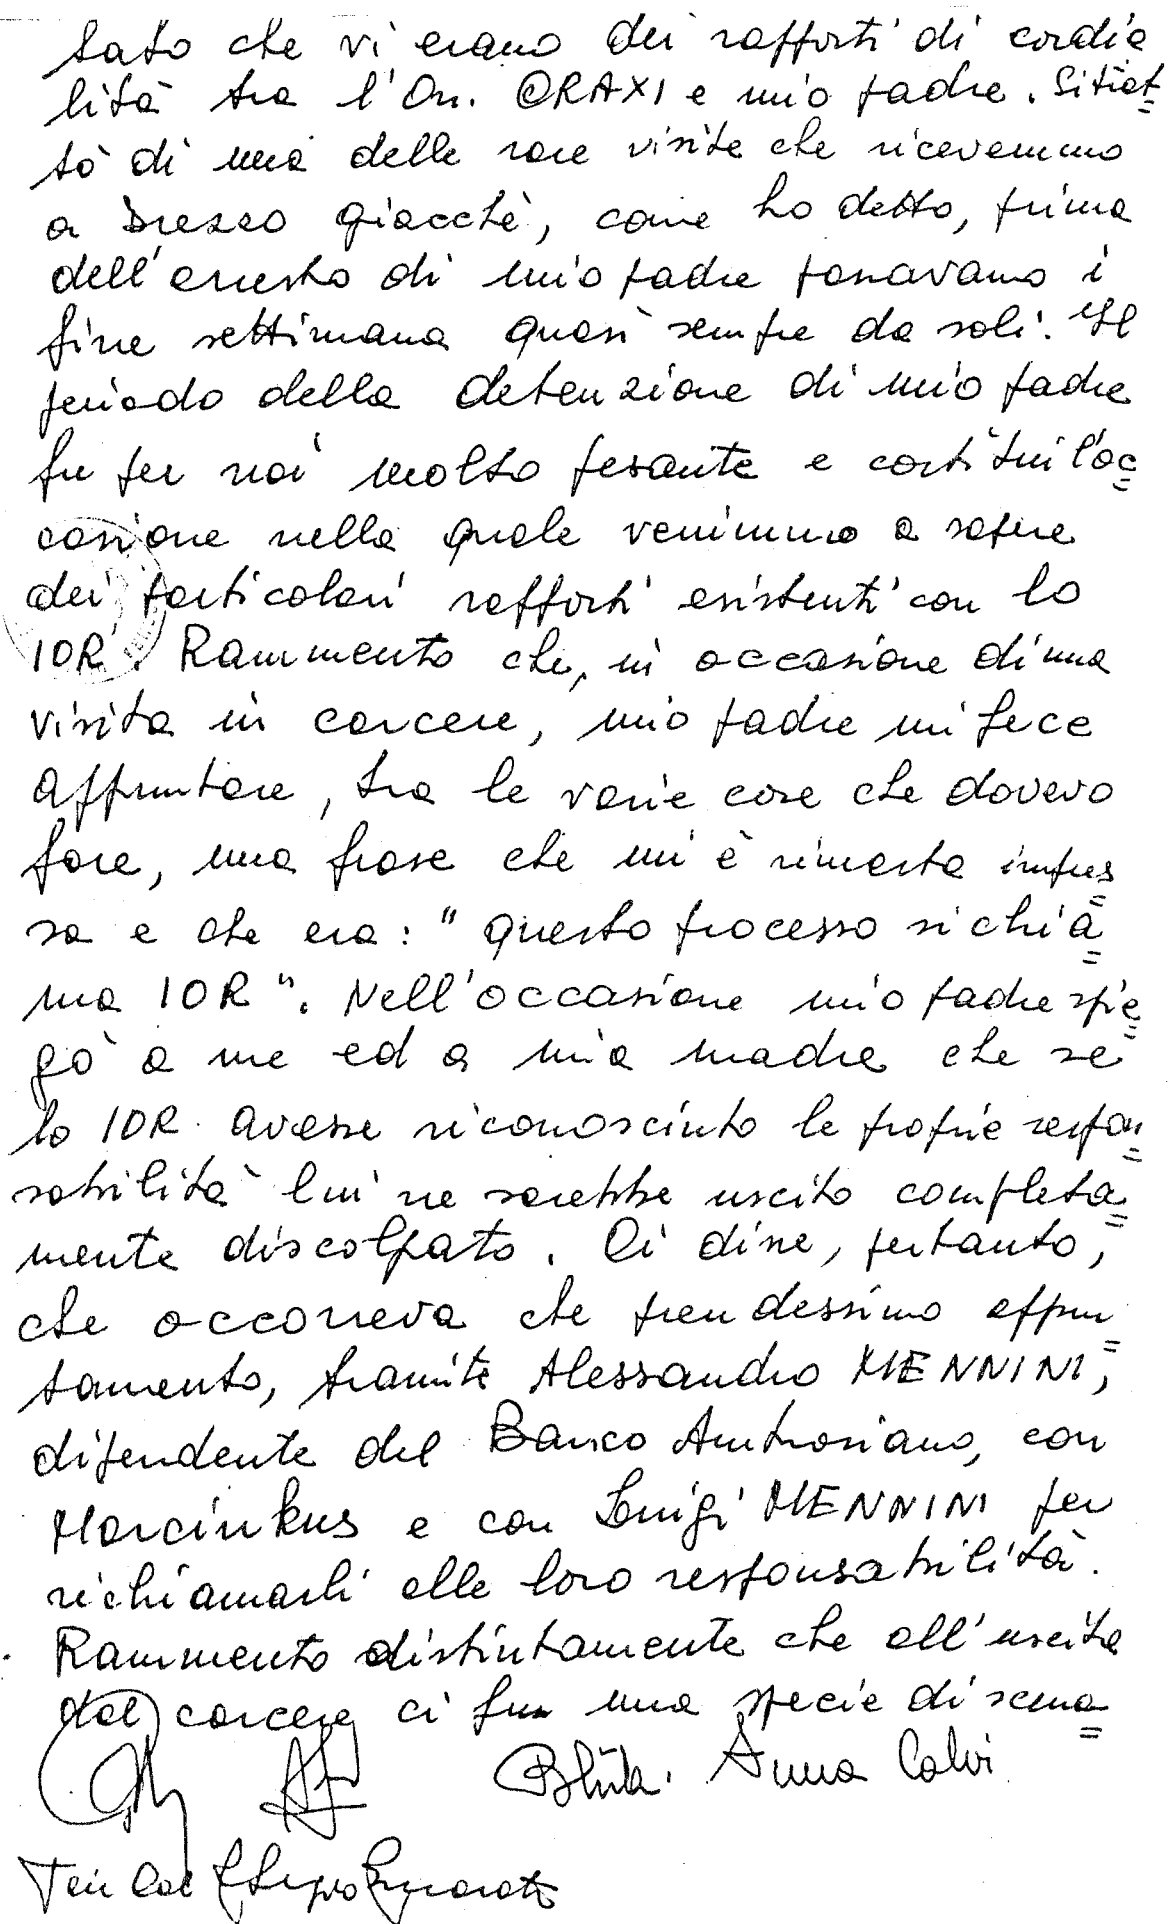 tato che vi erano dei rapporti di cordia
lità tra l'On. CRAXI e mio padre. Si trat=
tò di una delle rare visite che ricevemmo
a Drezzo giacchè, come ho detto, prima
dell'arresto di mio padre passavamo i
fine settimana quasi sempre da soli. Il
periodo della detenzione di mio padre
fu per noi molto pesante e costituì l'oc=
casione nella quale venimmo a sapere
dei particolari rapporti esistenti con lo
IOR. Rammento che, in occasione di una
visita in carcere, mio padre mi fece
appuntare, tra le varie cose che dovevo
fare, una frase che mi è rimasta impres=
sa e che era: "questo processo si chia=
ma IOR". Nell'occasione mio padre spie=
gò a me ed a mia madre che se
lo IOR avesse riconosciuto le proprie respon=
sabilità lui ne sarebbe uscito completa=
mente discolpato. Ci disse, pertanto,
che occorreva che prendessimo appun=
tamento, tramite Alessandro MENNINI,
dipendente del Banco Ambrosiano, con
Marcinkus e con Luigi MENNINI per
richiamarli alle loro responsabilità.
Rammento distintamente che all'uscita
dal carcere ci fu una specie di scena=
Anna Calvi
Ten Col